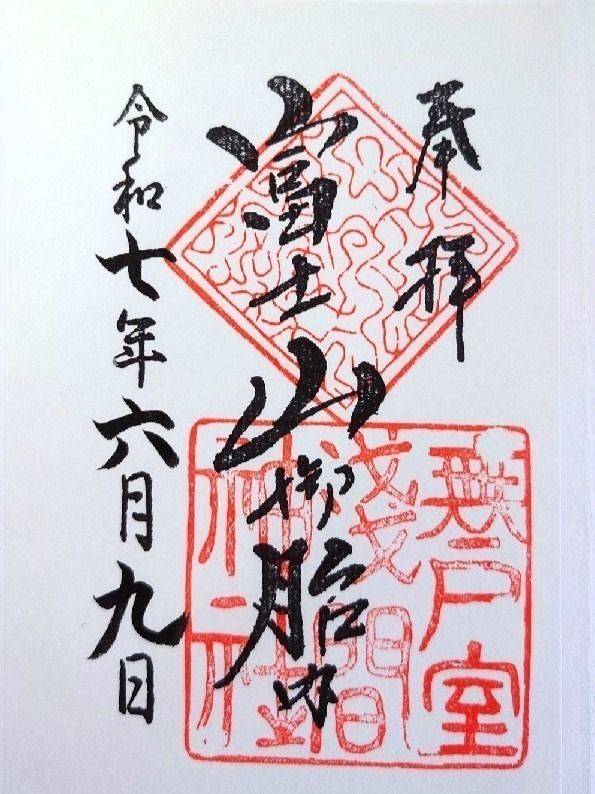 奉拝
富士山御胎内
令和七年六月九日
無戸室
浅間
神社